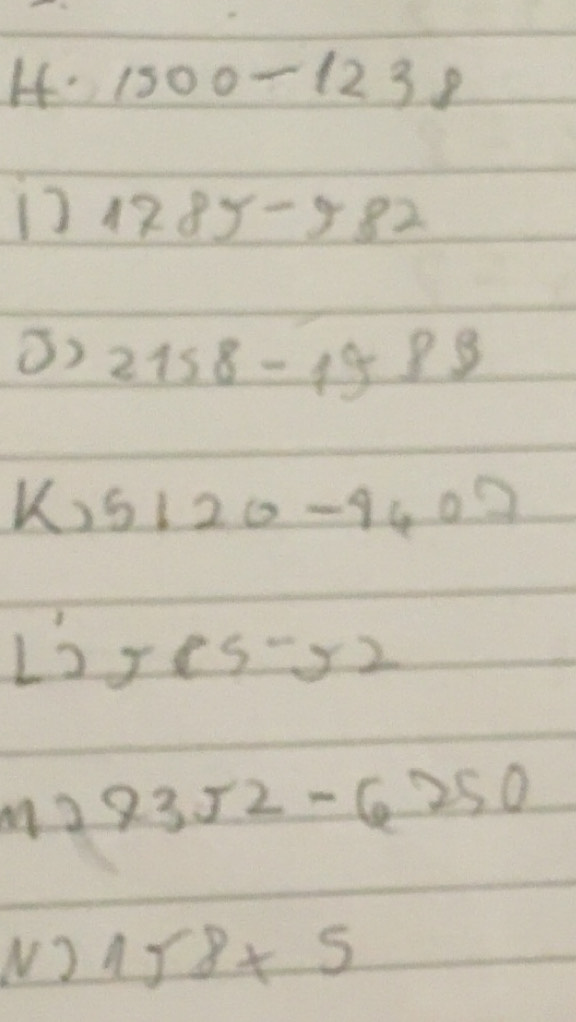 H. 1500-1238
i) 1785-582
J) 2158-1589
K) 5120-9407
L) 5 2
M) 9352-6750
N) 158x5